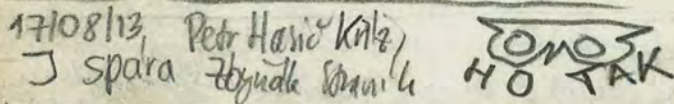 17/08/13, Petr Hasič Kříž,
J spára Zbyněk
NO TAK